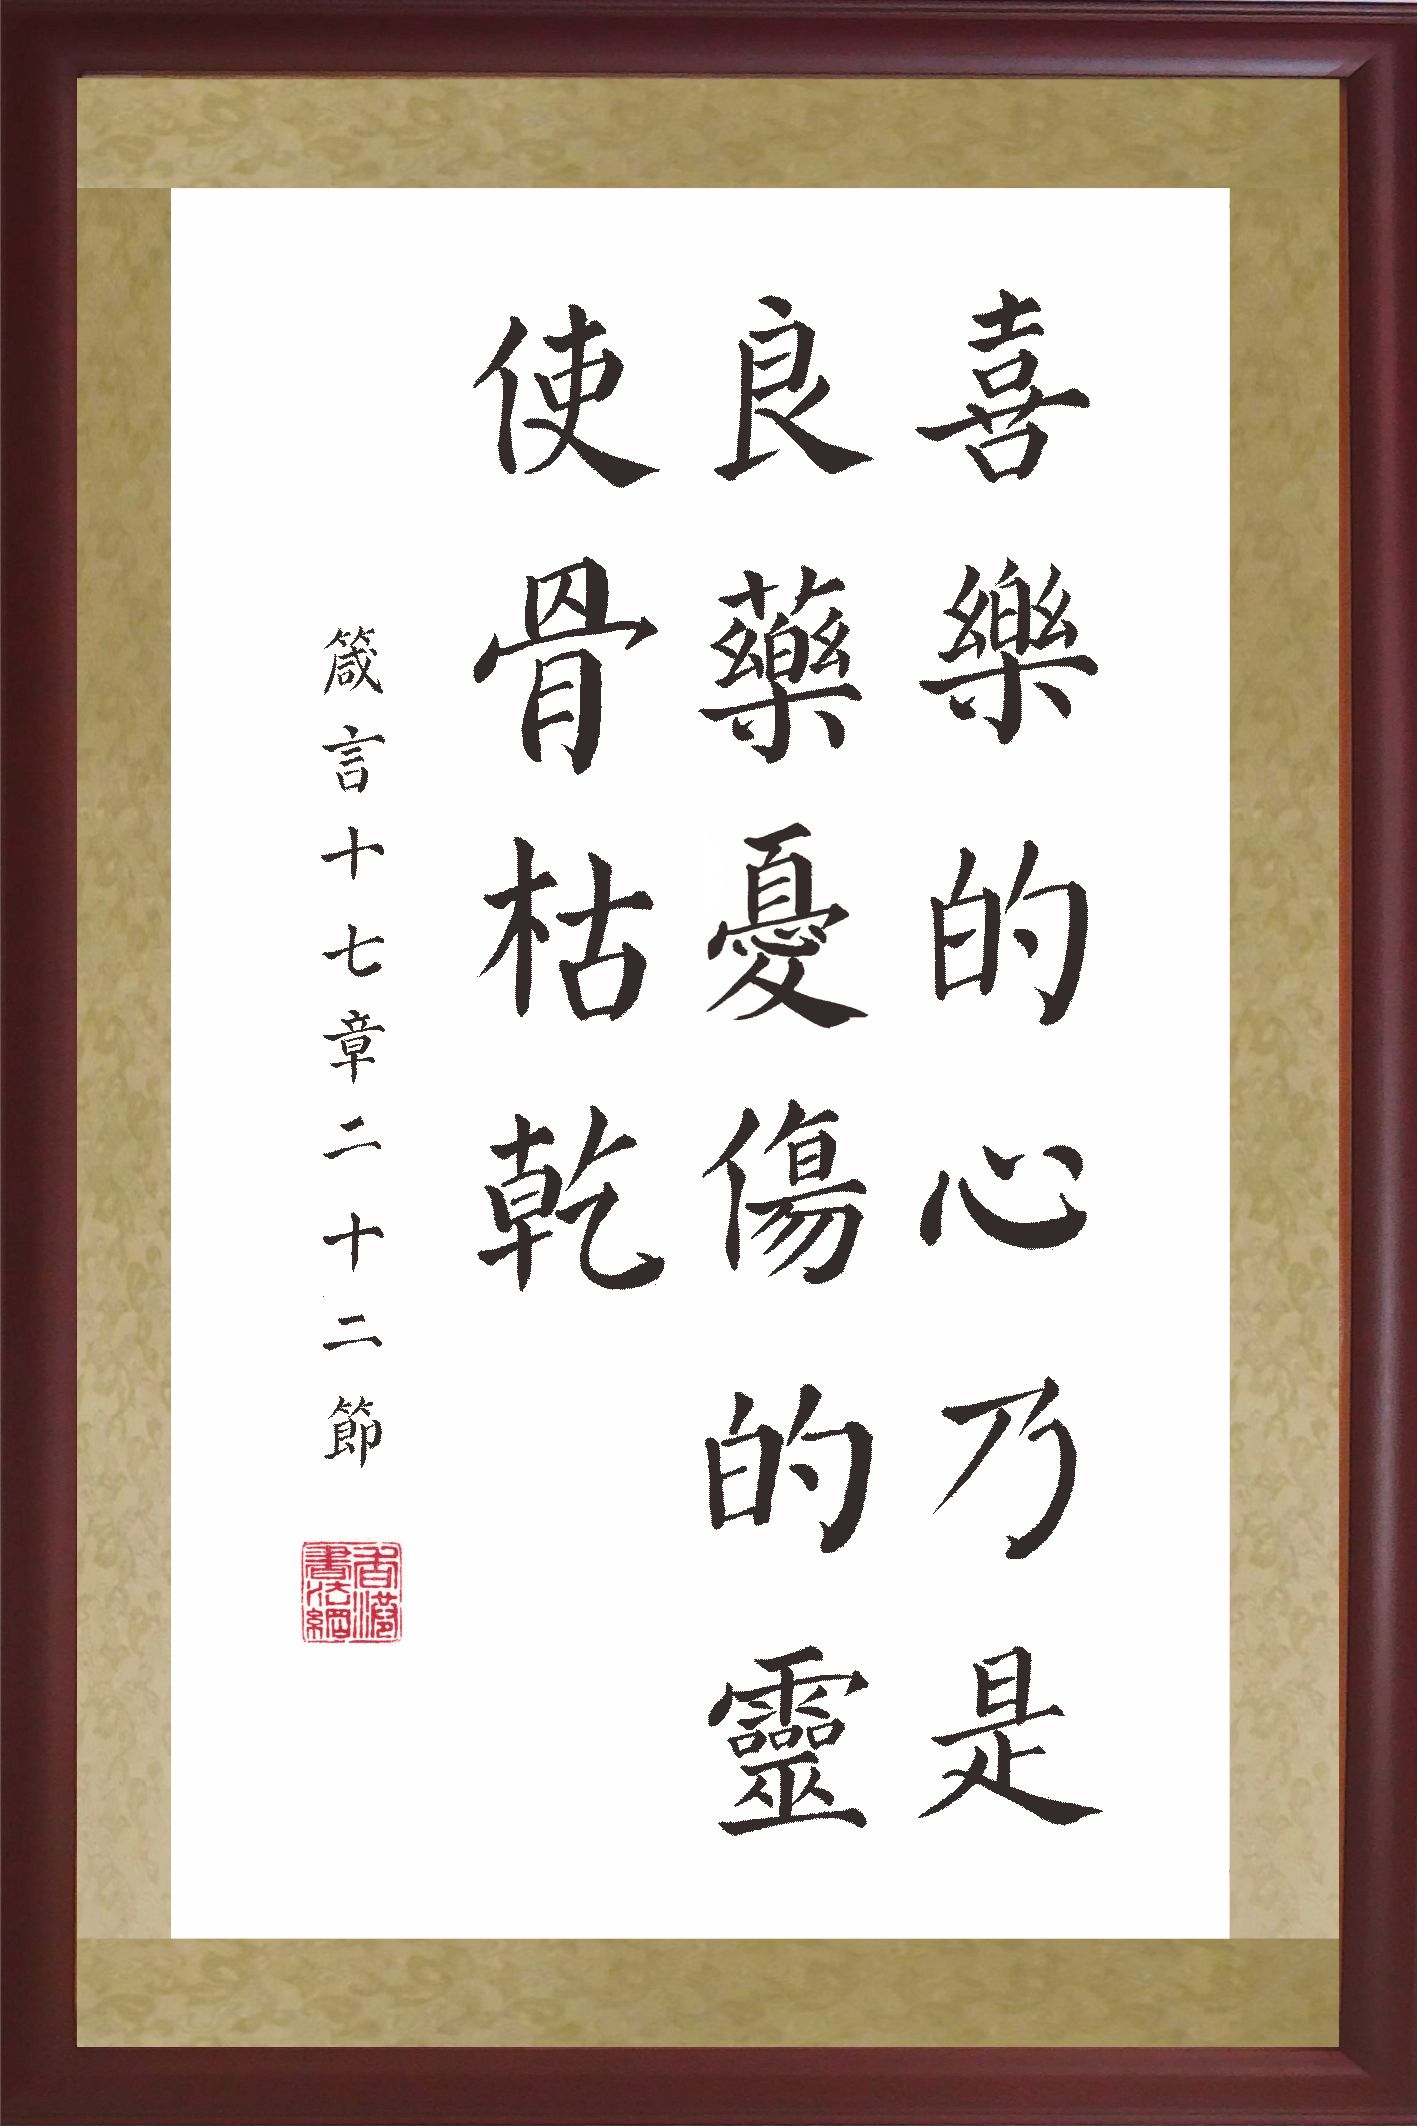 喜樂的心乃是
良藥憂傷的靈
使骨枯乾
箴言十七章二十二節
香港
書法網